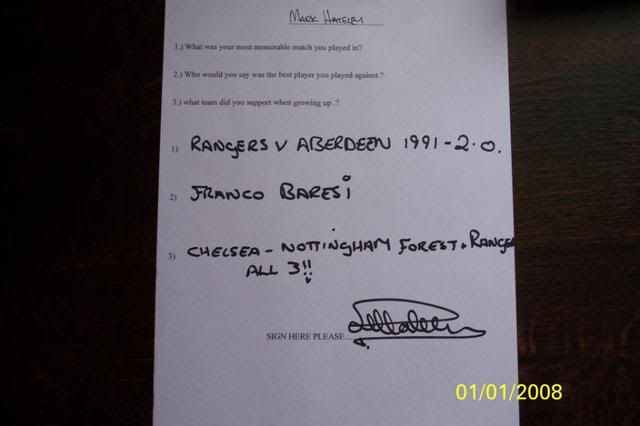 MARK HATELEY
1.) What was your most memorable match you played in?
2.) Who would you say was the best player you played against.?
3.) what team did you support when growing up .?
1) RANGERS V ABERDEEN 1991 - 2.0.
2) FRANCO BARESi
3) CHELSEA - NOTTiNGHAM FOREST + RANGE
ALL 3!!
SIGN HERE PLEASE...
01/01/2008